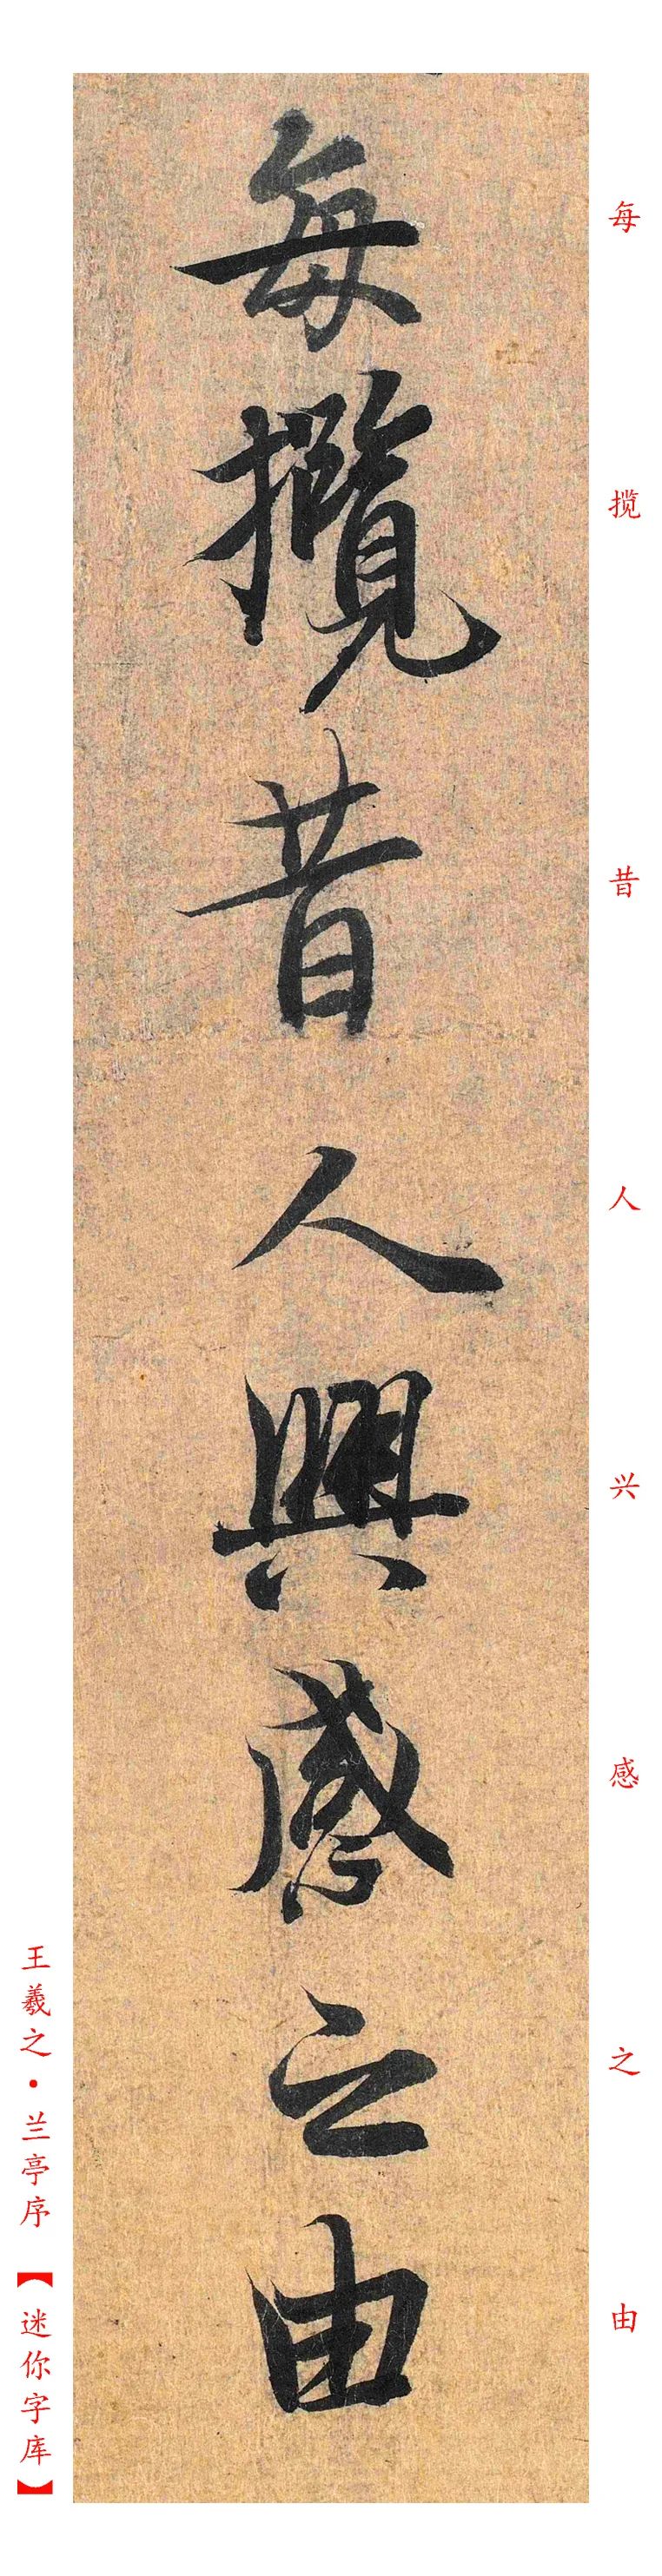 每攬昔人興感之由
每揽昔人兴感之由
王羲之·兰亭序【迷你字库】